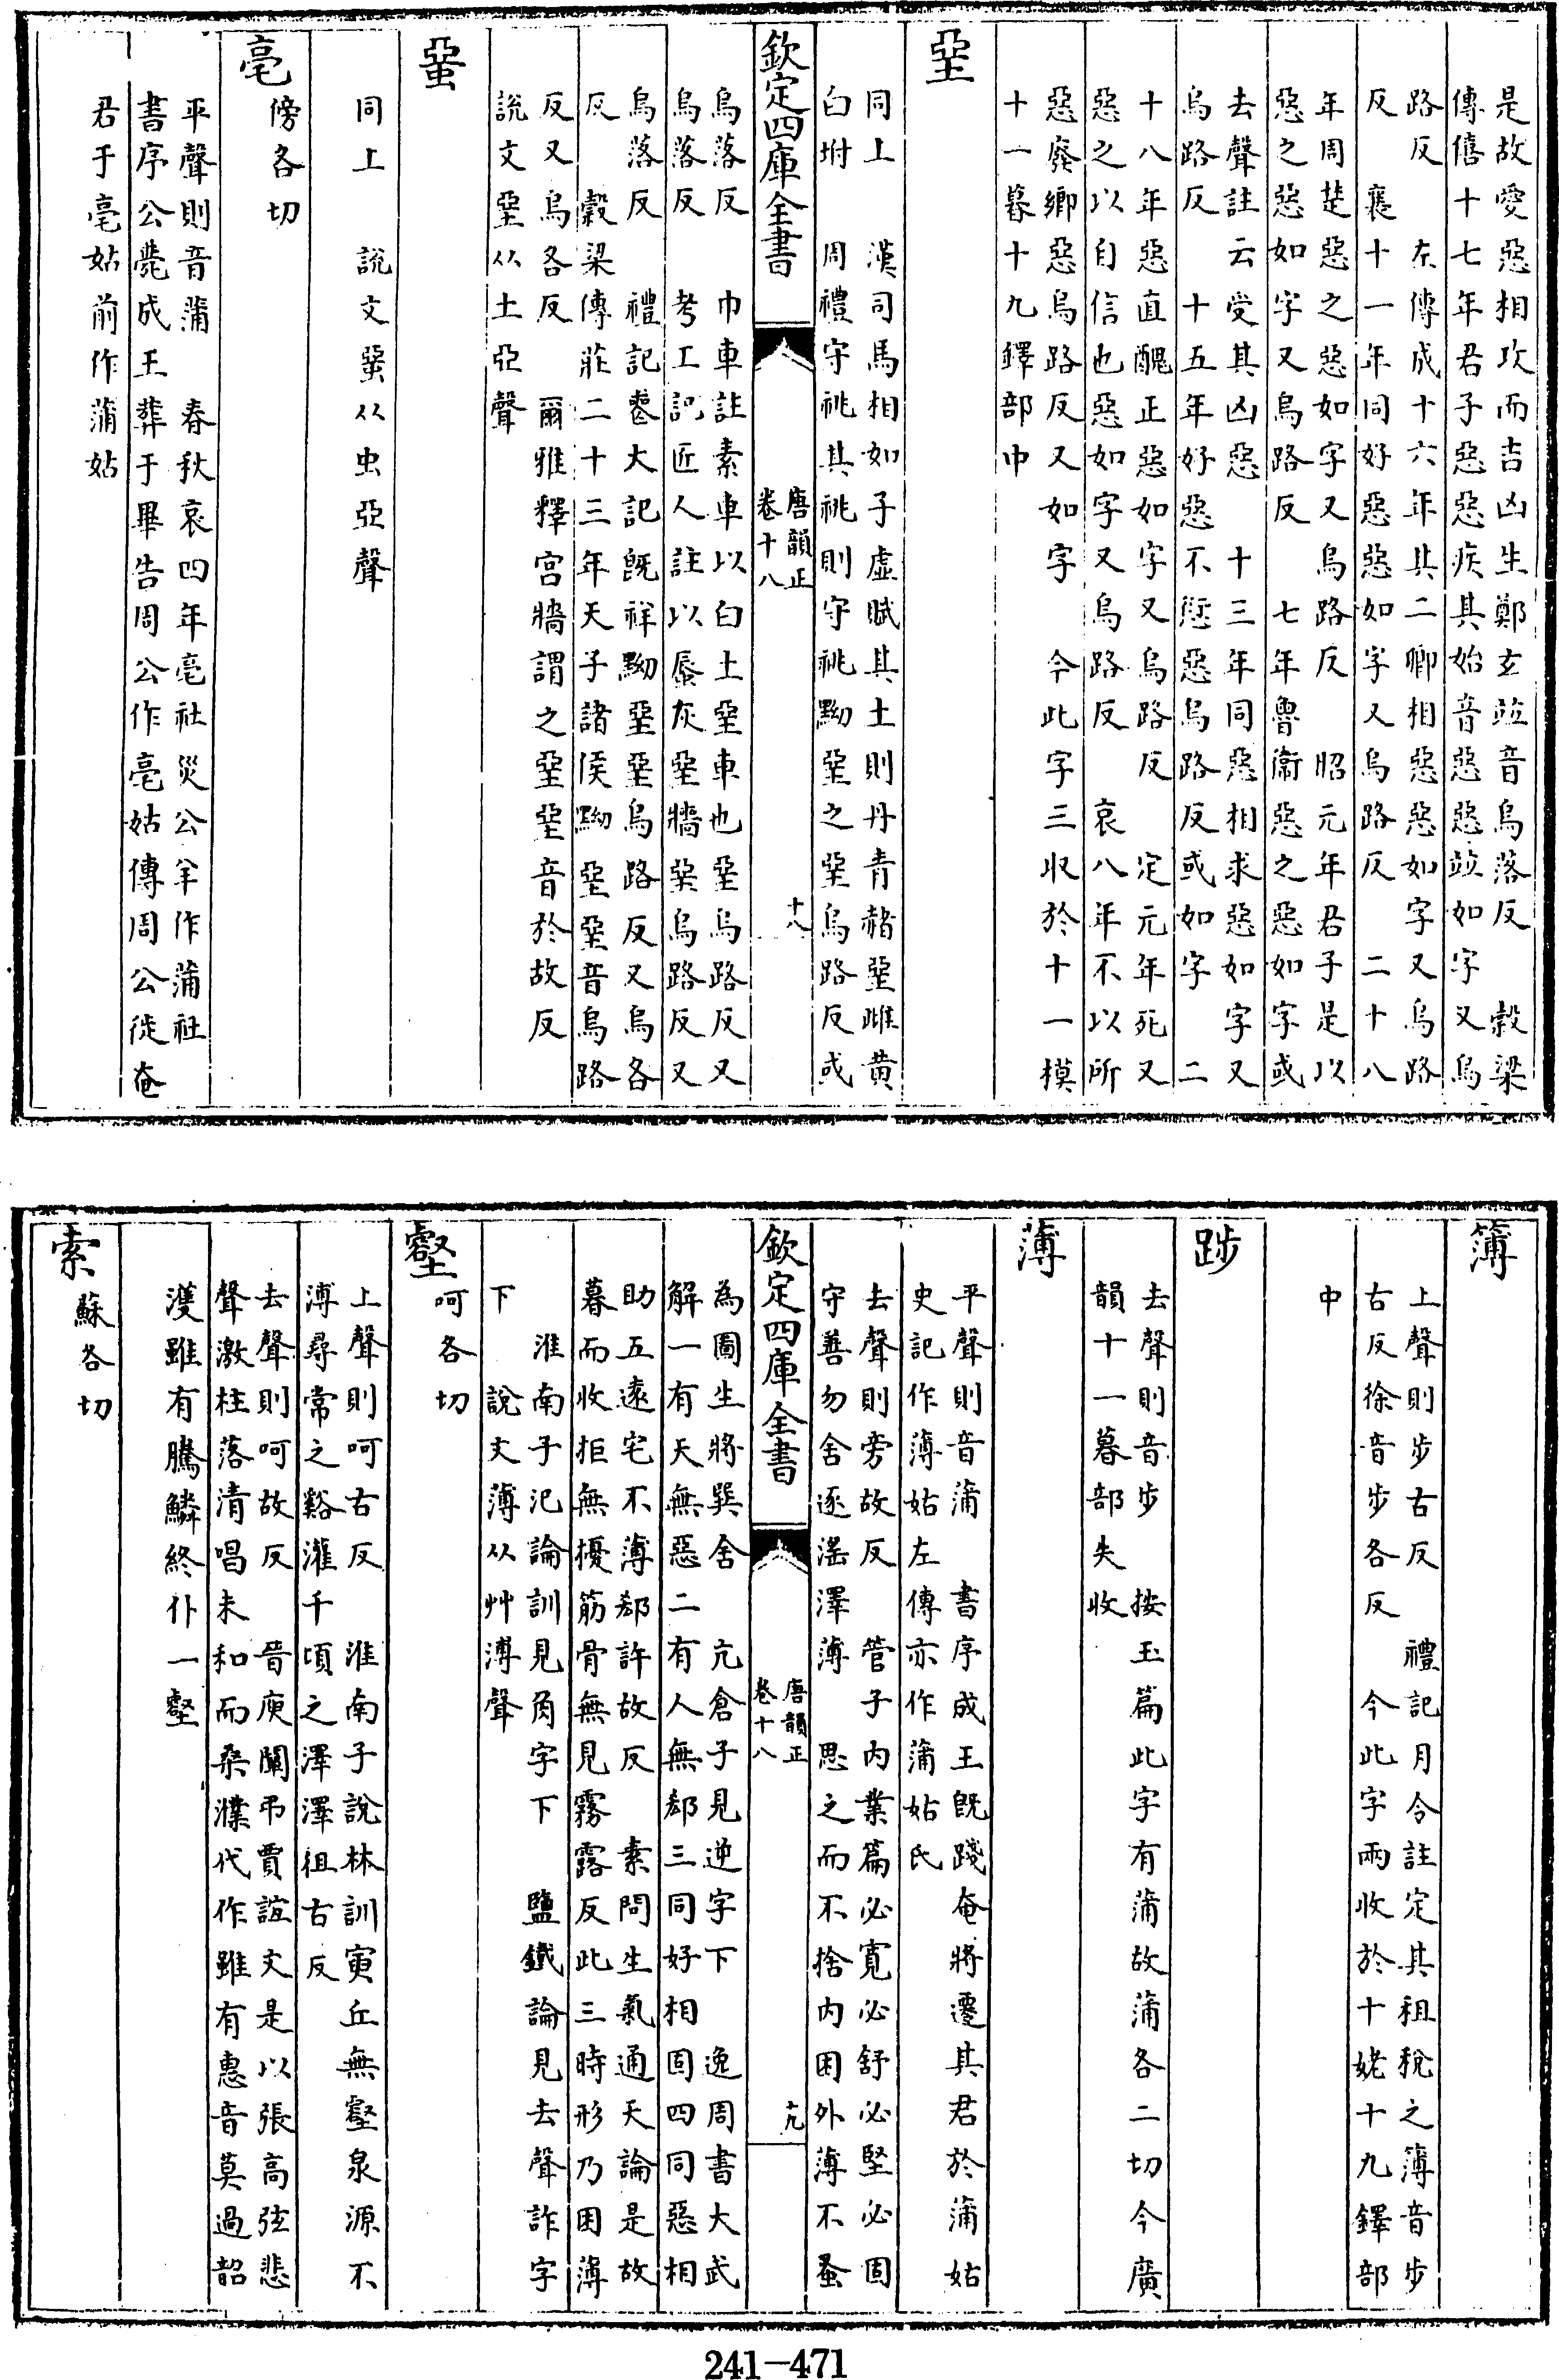 是故愛惡相攻而吉凶生鄭玄竝音烏落反　穀梁
傳僖十七年君子惡惡疾其始音惡惡竝如字又烏
路反　左傳成十六年其二卿相惡惡如字又烏路
反　襄十一年同好惡惡如字又烏路反　二十八
年周楚惡之惡如字又烏路反　昭元年君子是以
惡之惡如字又烏路反　七年魯衞惡之惡如字或
去聲註云受其凶惡　十三年同惡相求惡如字又
烏路反　十五年好惡不愆惡烏路反或如字　二
十八年惡直醜正惡如字又烏路反　定元年死又
惡之以自信也惡如字又烏路反　哀八年不以所
惡廢鄉惡烏路反又如字　今此字三收於十一模
十一暮十九鐸部中
堊
同上　漢司馬相如子虛賦其土則丹青赭堊雌黄
白坿　周禮守祧其祧則守祧黝堊之堊烏路反或
欽定四庫全書
唐韻正
卷十八
十八
烏落反　巾車註素車以白土堊車也堊烏路反又
烏落反　考工記匠人註以蜃灰堊牆堊烏路反又
烏落反　禮記喪大記旣祥黝堊堊烏路反又烏各
反　穀梁傳莊二十三年天子諸侯黝堊堊音烏路
反又烏各反　爾雅釋宫牆謂之堊堊音於故反
說文堊从土亞聲
蝁
同上　說文蝁从虫亞聲
亳
傍各切
平聲則音蒲　春秋哀四年亳社災公羊作蒲社
書序公薨成王葬于畢告周公作亳姑傳周公徙奄
君于亳姑前作蒲姑
簿
上聲則步古反　禮記月令註定其租稅之簿音步
古反徐音步各反　今此字兩收於十姥十九鐸部
中
䟛
去聲則音步　按玉篇此字有蒲故蒲各二切今廣
韻十一暮部失收
薄
平聲則音蒲　書序成王旣踐奄將遷其君於蒲姑
史記作薄姑左傳亦作蒲姑氏
去聲則旁故反　管子内業篇必寛必舒必堅必固
守善勿舍逐滛澤薄　思之而不捨内困外薄不蚤
欽定四庫全書
唐韻正
卷十八
十九
為圖生將巽舍　亢倉子見逆字下　逸周書大武
解一有天無惡二有人無郄三同好相固四同惡相
助五遠宅不薄郄許故反　素問生氣通天論是故
暮而收拒無擾筋骨無見霧露反此三時形乃困薄
淮南子氾論訓見角字下　鹽鐵論見去聲詐字
下　說文薄从艸溥聲
壑
呵各切
上聲則呵古反　淮南子說林訓寅丘無壑泉源不
溥尋常之谿灌千頃之澤澤徂古反
去聲則呵故反　晉庾闡弔賈誼文是以張高弦悲
聲激柱落清唱未和而桑濮代作雖有惠音莫過韶
濩雖有騰鱗終仆一壑
索
蘇各切
241-471